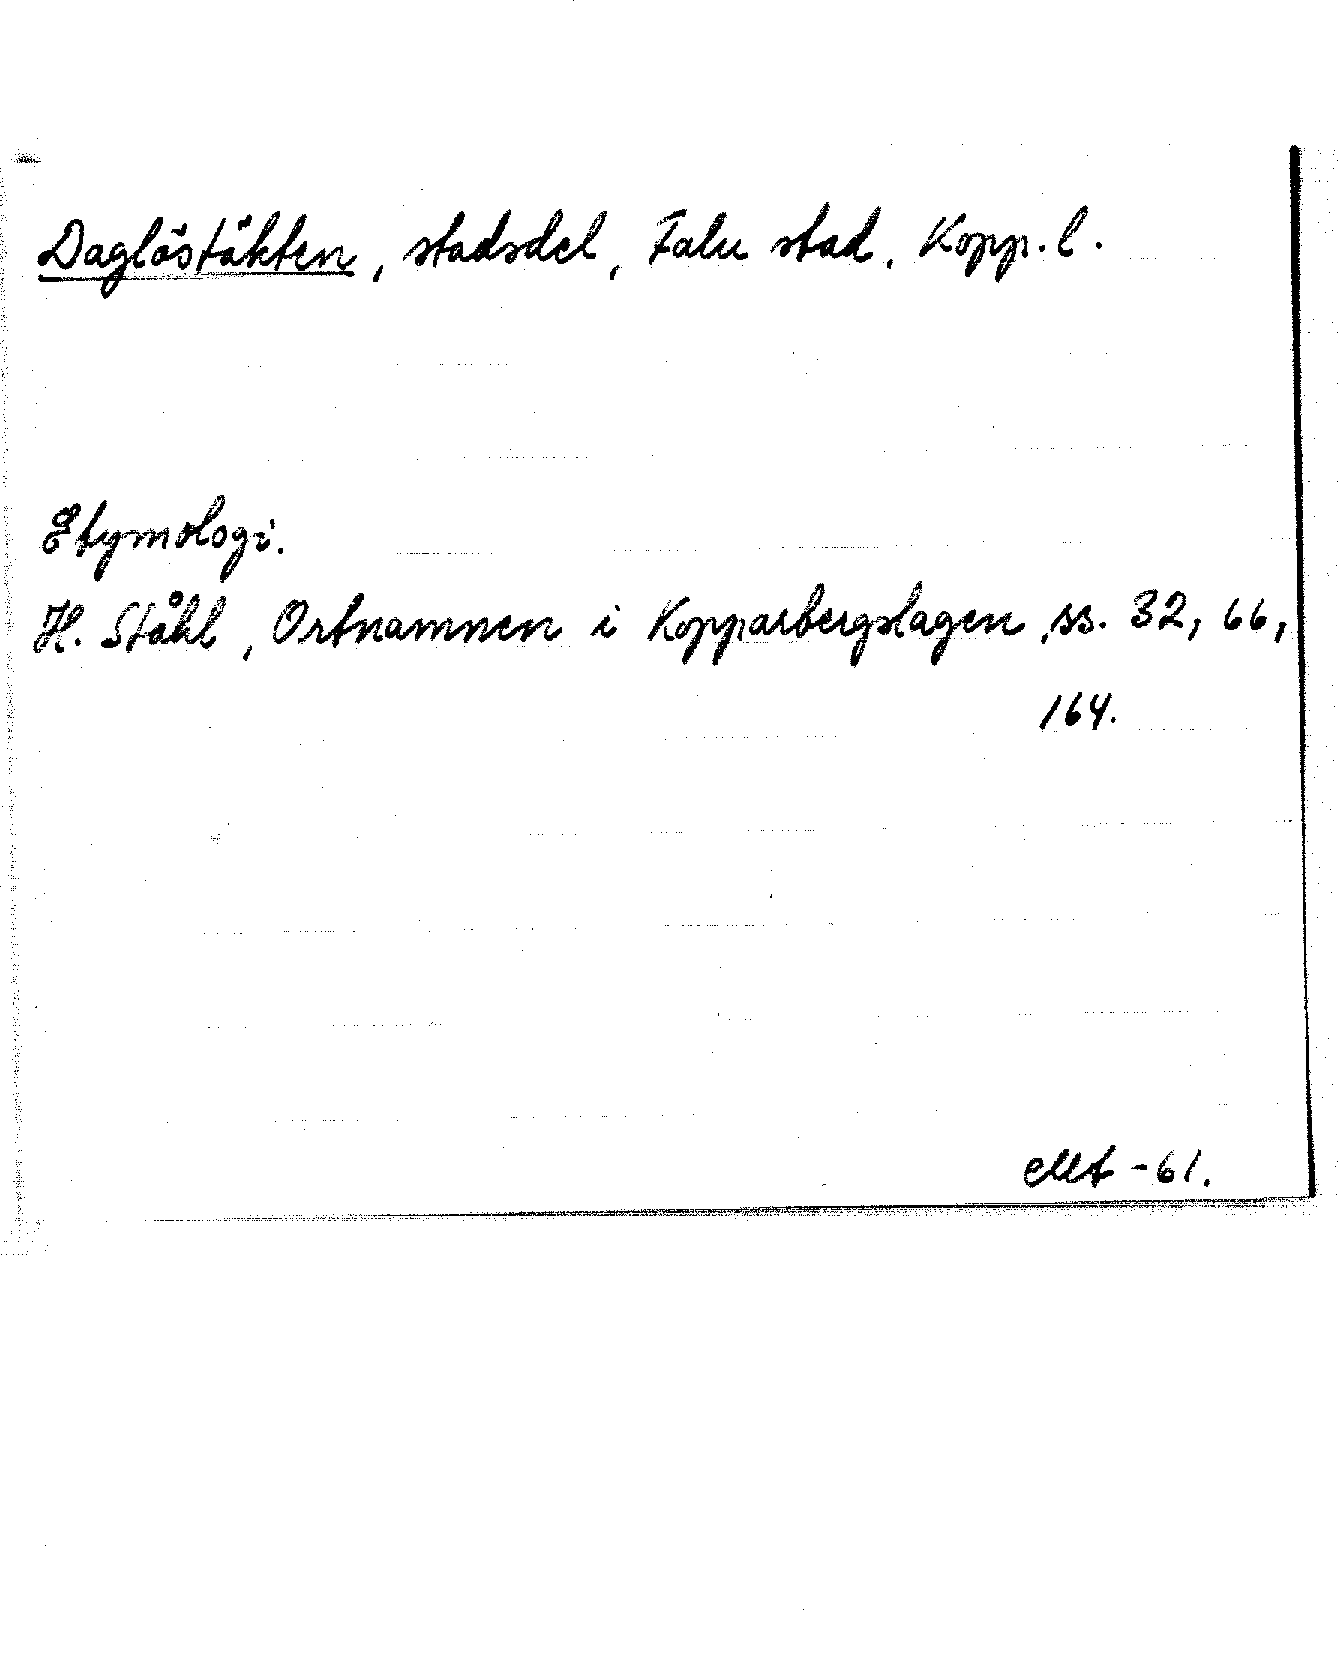 Daglöstäkten, stadsdel, Falu stad. Kopp. l.
Etymologi.
H. Ståhl, Ortnamnen i Kopparbergslagen, ss. 32, 66,
164.
-61.